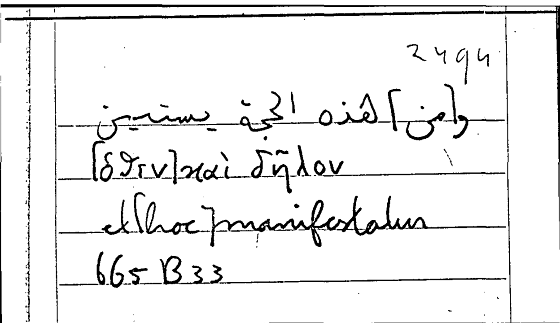 2494
و[من] هذه الجهة يستبين
[ὅθεν] καὶ δῆλον
et [hoc] manifestatur
665 B 33